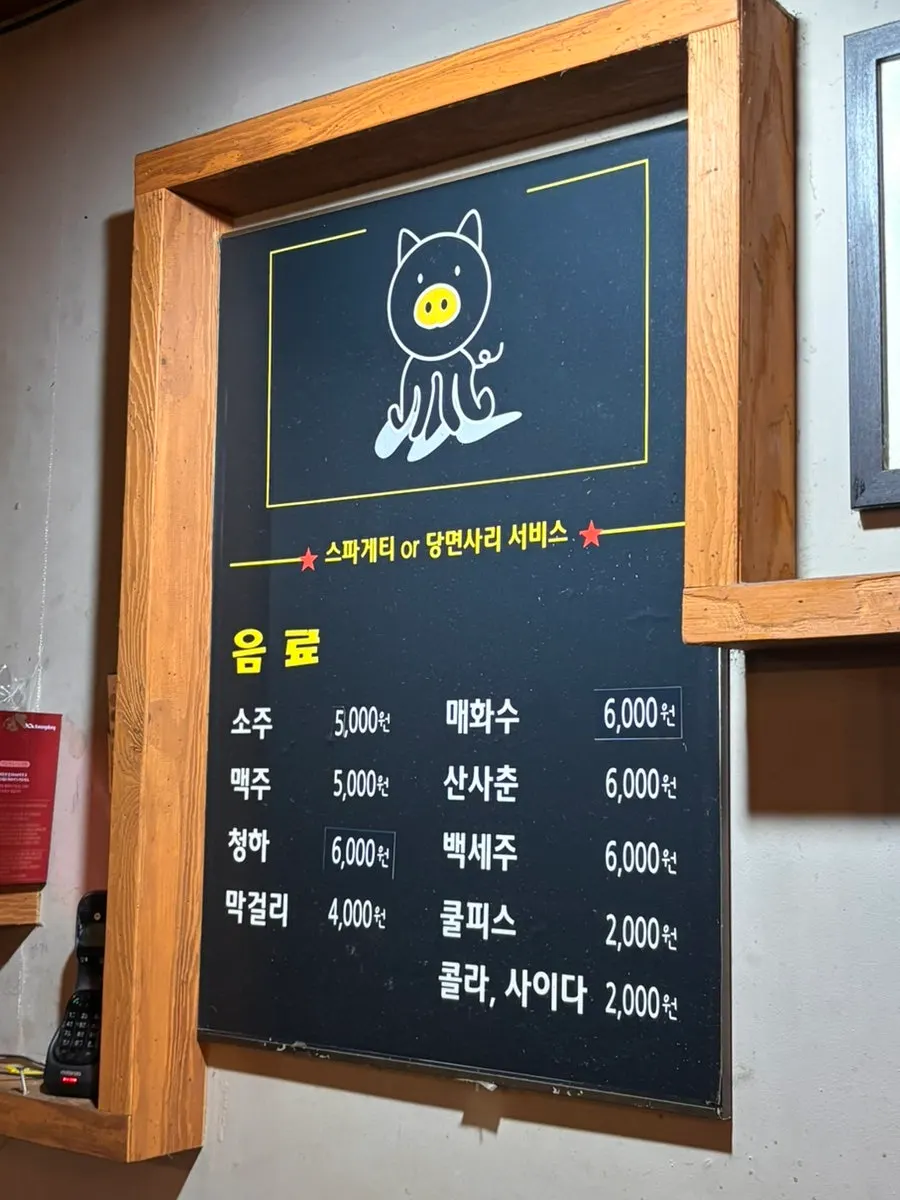 스파게티 or 당면사리 서비스
음료
소주 5,000원
맥주 5,000원
청하 6,000원
막걸리 4,000원
매화수 6,000원
산사춘 6,000원
백세주 6,000원
쿨피스 2,000원
콜라, 사이다 2,000원